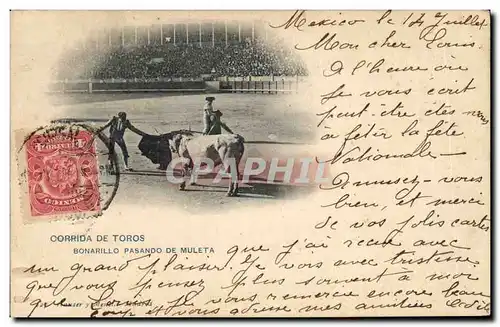 Mexico le 14 Juillet
Mon cher Louis
A l'heure où
je vous ecrit
peut-être êtes vous
à fêtir la fête
Nationale
Amusez-vous
bien, et merci
de vos jolis cartes
CORRIDA DE TOROS
BONARILLO PASANDO DE MULETA
CPAPHIL
MEXICO
que j'ai reçu avec
un grand plaisir. Je vois avec tristesse
que vous pensez plus souvent a moi
que
Je vous remercie encore beau
coup et vous adresse mes amitiées